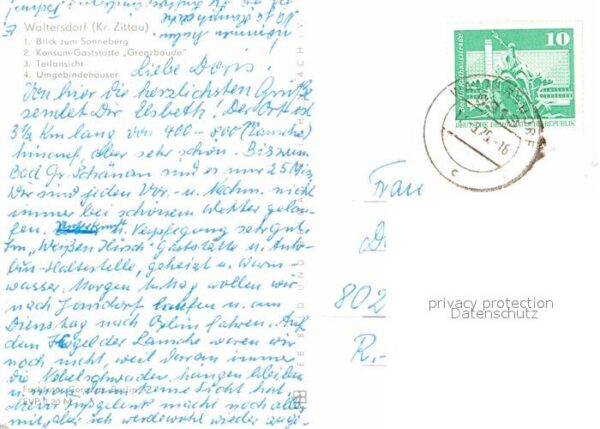 Waltersdorf (Kr. Zittau)
1. Blick zum Sonneberg
2. Konsum-Gaststätte „Grenzbaude"
3. Teilansicht
4. Umgebindehäuser
Liebe Doris!
Von hier die herzlichsten Grüße
sendet Dir Elsbeth! Der Ort ist
3½ km lang von 400 - 800 (Lausche)
hinauf, aber sehr schön. Bis zum
Bad Gr. Schönau sind es nur 25 Min.
Wir sind jeden Vor.- u. Nachm. nicht
immer bei schönem Wetter gelau-
fen. Unterkunft u. Verpflegung sehr gut.
Im „Weißen Hirsch" Gaststätte u. Auto-
bus-Haltestelle, geheizt u. Warm-
wasser. Morgen wollen wir
nach Jonsdorf laufen u. am
Dienstag nach Oybin fahren. Auf
dem der Lausche waren wir
noch nicht, weil daran imme
die Nebelschwaden hängen bleiben
u. man keine Sicht hat,
Fußgelenk macht noch alles
mit, aber ich werde wohl wieder
10
DEUTSCHE DEMOKRATISCHE REPUBLIK
Frau
802
R.-
privacy protection
Datenschutz